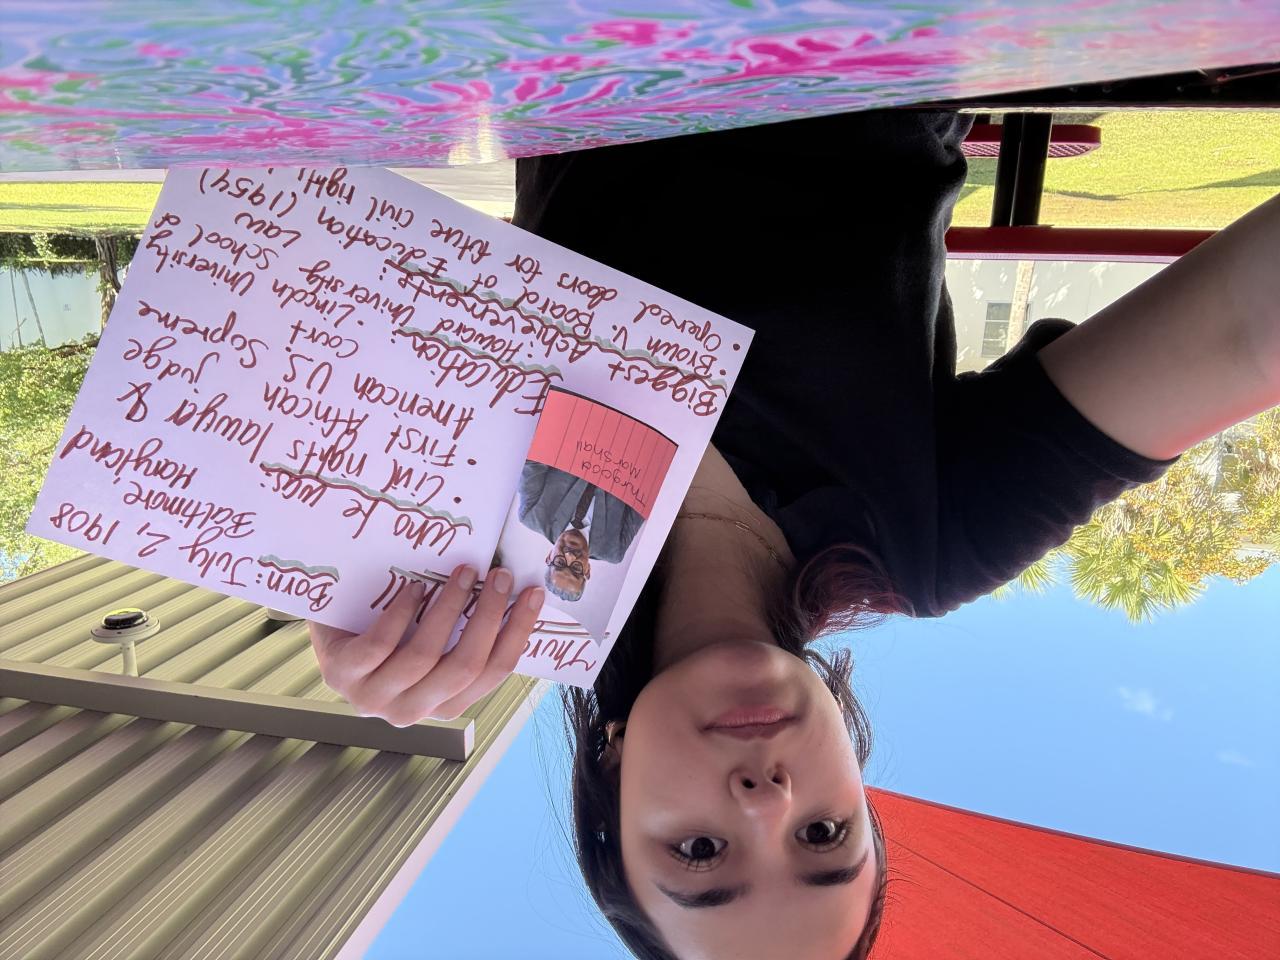 Thurg
all
Born: July 2, 1908
Baltimore,
Maryland
Who he was:
• Civil rights lawyer &
judge
• First African
American U.S. Supreme
Court
Education:
• Howard University School of
Law
• Lincoln University
Biggest Achievements:
• Brown V. Board of Education (1954)
• Opened doors for future civil right
Thurgood
Marshall